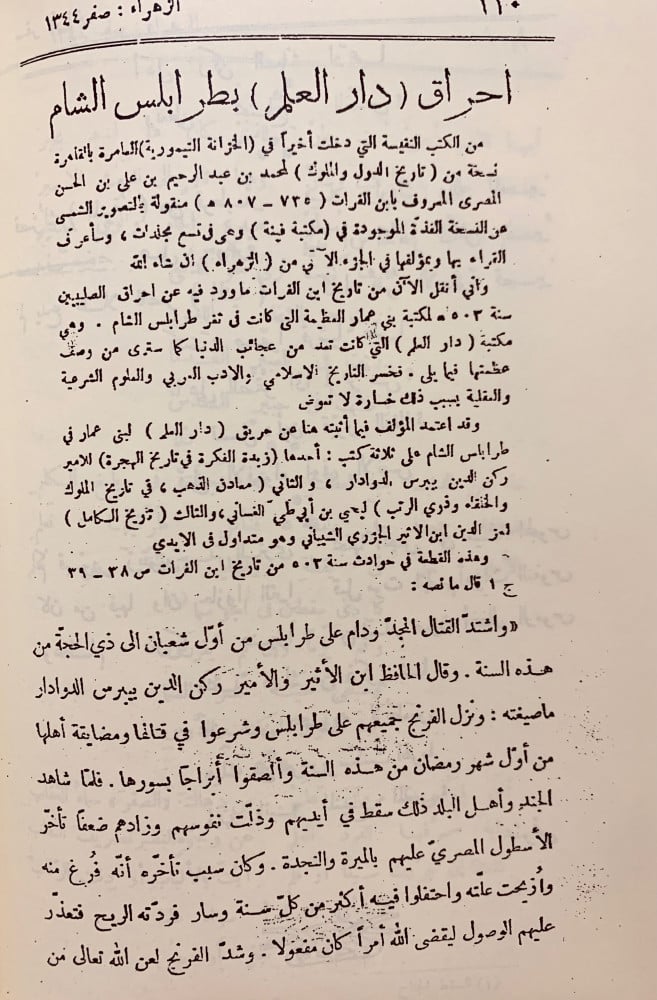 ١١٠ الزهراء : صفر ١٣٤٤
احراق ( دار العلم ) بطرابلس الشام
من الكتب النفيسة التي دخلت أخيراً في (الخزانة التيمورية) العامرة بالقاهرة
نسخة من ( تاريخ الدول والملوك ) لمحمد بن عبد الرحيم بن علي بن الحسن
المصرى المعروف بابن الفرات ( ٧٣٥ – ٨٠٧ ه ) منقولة بالتصوير الشمسى
عن النسخة الفذة الموجودة في (مكتبة فينة ) وهى فى تسع مجلدات ، وسأعرف
القراء بها وبمؤلفها في الجزء الآتي من ( الزهراء ) ان شاء الله
وأني أنقل الآن من تاريخ ابن الفرات ما ورد فيه عن احراق الصليبيين
سنة ٥٠٣ ه لمكتبة بني عمار العظيمة التي كانت في ثغر طرابلس الشام . وهي
مكتبة ( دار العلم ) التي كانت تعد من عجائب الدنيا كما سترى من وصف
عظمتها فيما يلى . فخسر التاريخ الاسلامي والادب العربي والعلوم الشرعية
والعقلية بسبب ذلك خسارة لا تعوض
وقد اعتمد المؤلف فيما أثبته هنا عن حريق ( دار العلم ) لبنى عمار في
طرابلس الشام على ثلاثة كتب : أحدها (زبدة الفكرة في تاريخ الهجرة) للامير
ركن الدين بيبرس الدوادار ، والثاني ( معادن الذهب ، في تاريخ الملوك
والخلفاء وذوي الرتب ) ليحيى بن أبي طي الغسانى ، والثالث ( تاريخ الكامل )
لعز الدين ابن الاثير الجزري الشيباني وهو متداول فى الايدي
وهذه القطعة في حوادث سنة ٥٠٣ من تاريخ ابن الفرات ص ٣٨ – ٣٩
ج ١ قال ما نصه :
«واشتدّ القتال المجدّ ودام على طرابلس من أوّل شعبان الى ذي الحجّة من
هذه السنة . وقال الحافظ ابن الأثير والأمير ركن الدين بيبرس الدوادار
ماصيغته : ونزل الفرنج جميعهم على طرابلس وشرعوا في قتالها ومضايقة أهلها
من أوّل شهر رمضان من هذه السنة وألصقوا أبراجًا بسورها . فلمّا شاهد
الجند وأهل البلد ذلك سقط في أيديهم وذلّت نفوسهم وزادهم ضعفًا تأخّر
الأسطول المصريّ عليهم بالميرة والنجدة . وكان سبب تأخّره أنّه فُرغ منه
وأُزيحت علّته واحتفلوا فيه أكثر من كلّ سنة وسار فردّته الريح فتعذّر
عليهم الوصول ليقضى الله أمراً كان مفعولا . وشدّ الفرنج لعن الله تعالى من